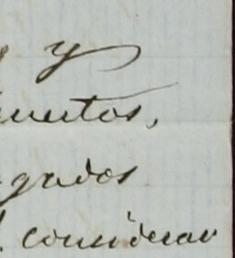 y
uestos,
gados
considerar